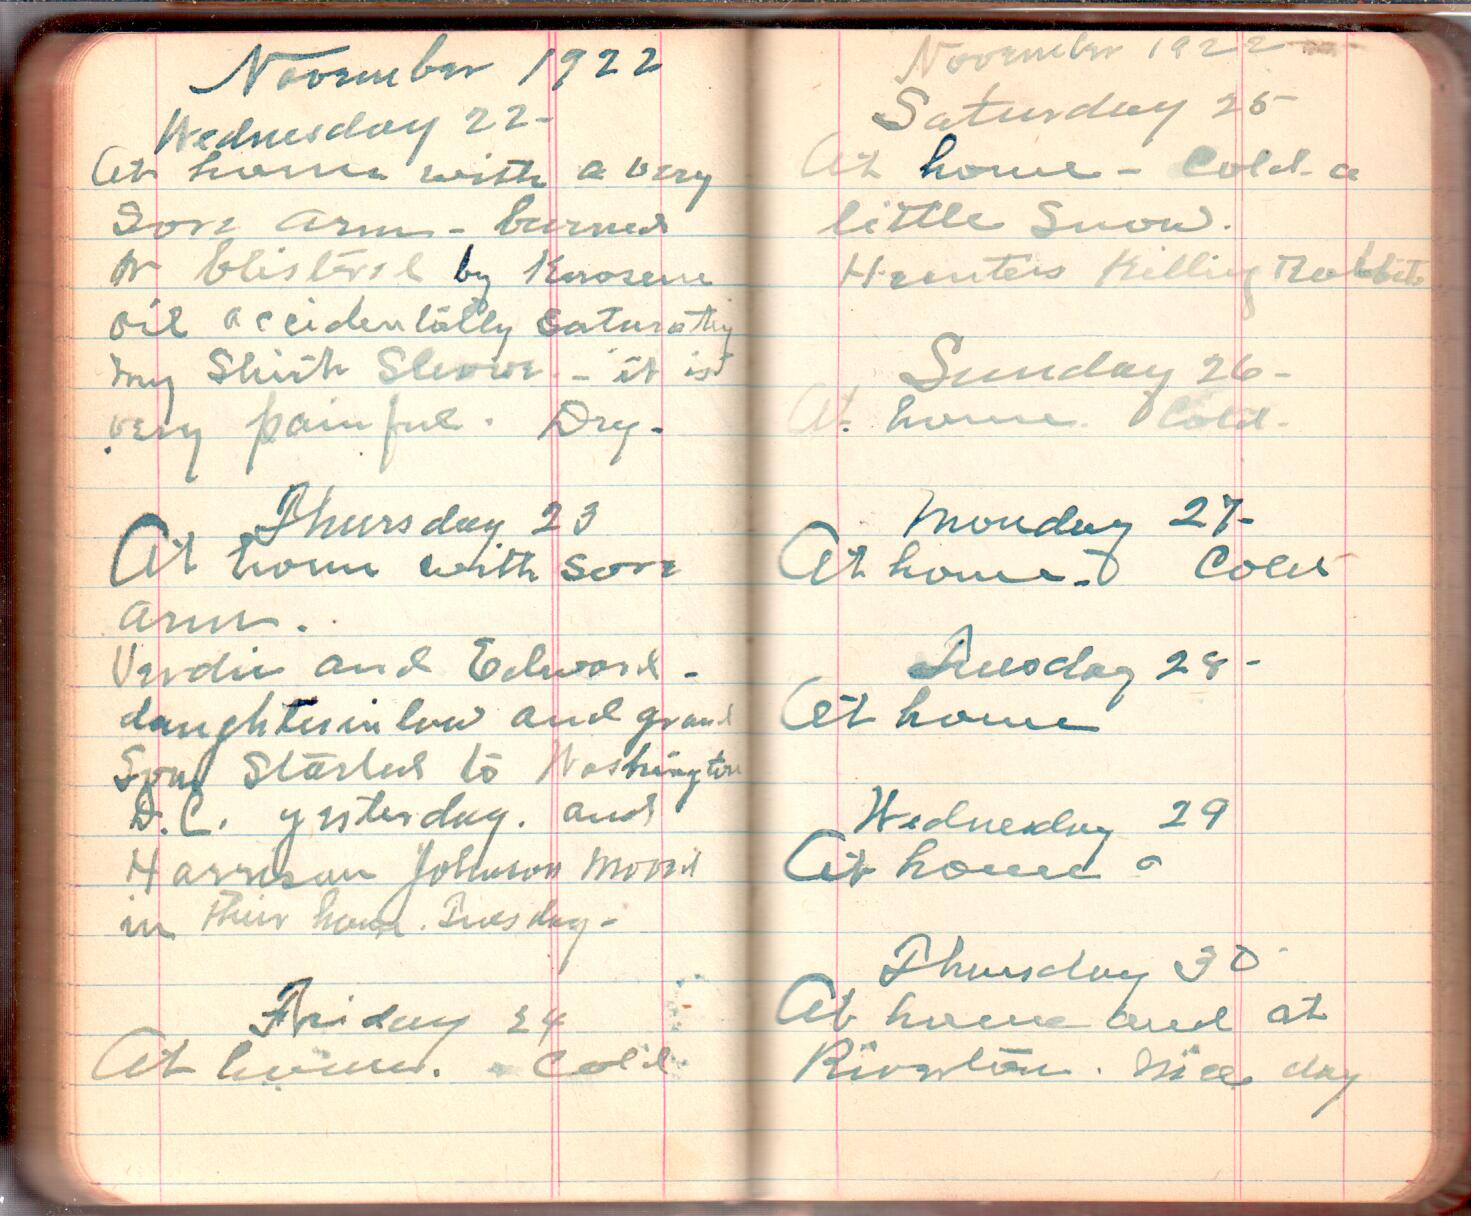 November 1922
Wednesday 22-
At home with a very
sore arm - burned
or blistered by Kerosene
oil accidentally saturating
my Shirt Sleeve - it is
very painful. Dry-
Thursday 23
At home with sore
arm.
Verdie and Edward -
daughter in law and grand
Son, Started to Washington
D.C. yesterday. and
Harrison Johnson moved
in their home. Tuesday-
Friday 24
At home. - Cold
November 1922
Saturday 25-
At home - Cold - a
little Snow.
Hunters Killing Rabbits
Sunday 26-
At home. Cold-
Monday 27-
At home. - Cold
Tuesday 28-
At home
Wednesday 29
At home
Thursday 30
At home and at
Riverton. Nice day